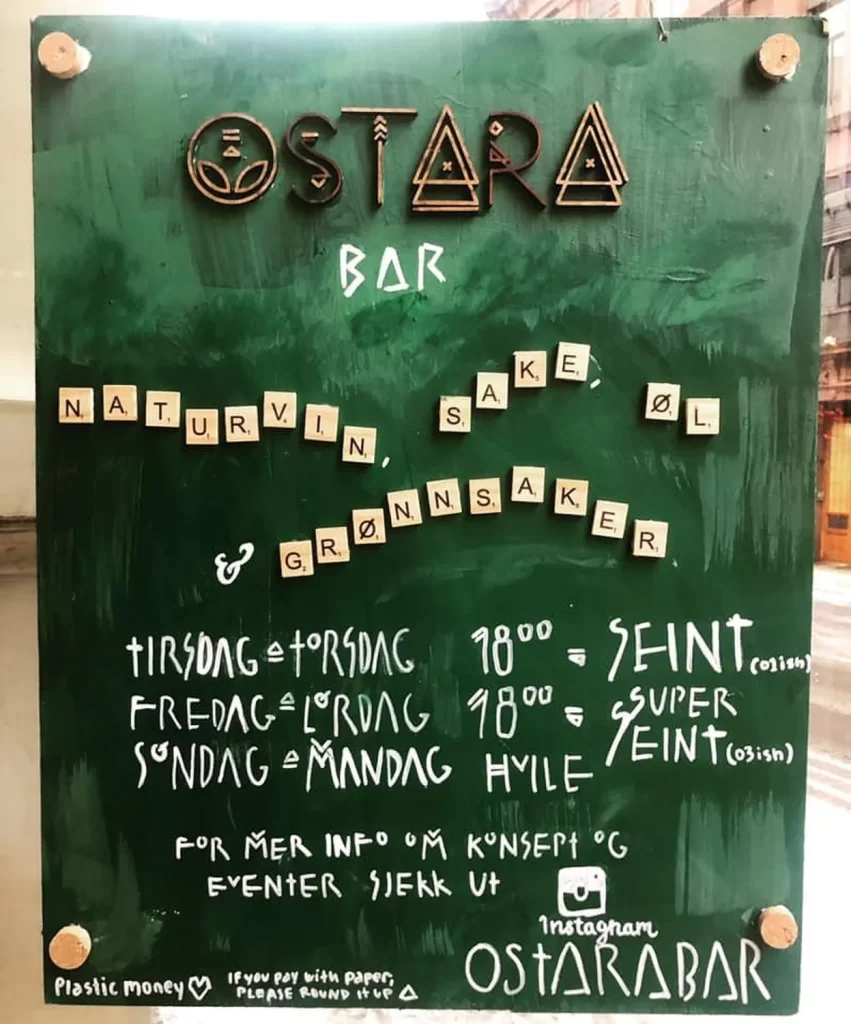 OSTARA
BAR
NATURVIN, SAKE, ØL
& GRØNNSAKER
TIRSDAG = TORSDAG 18⁰⁰ = SEINT (01ish)
FREDAG = LØRDAG 18⁰⁰ = SUPER SEINT (03ish)
SØNDAG = MANDAG HVILE
FOR MER INFO OM KONSEPT OG
EVENTER SJEKK UT
Instagram
OSTARABAR
Plastic money ♡ If you pay with paper,
PLEASE ROUND IT UP △